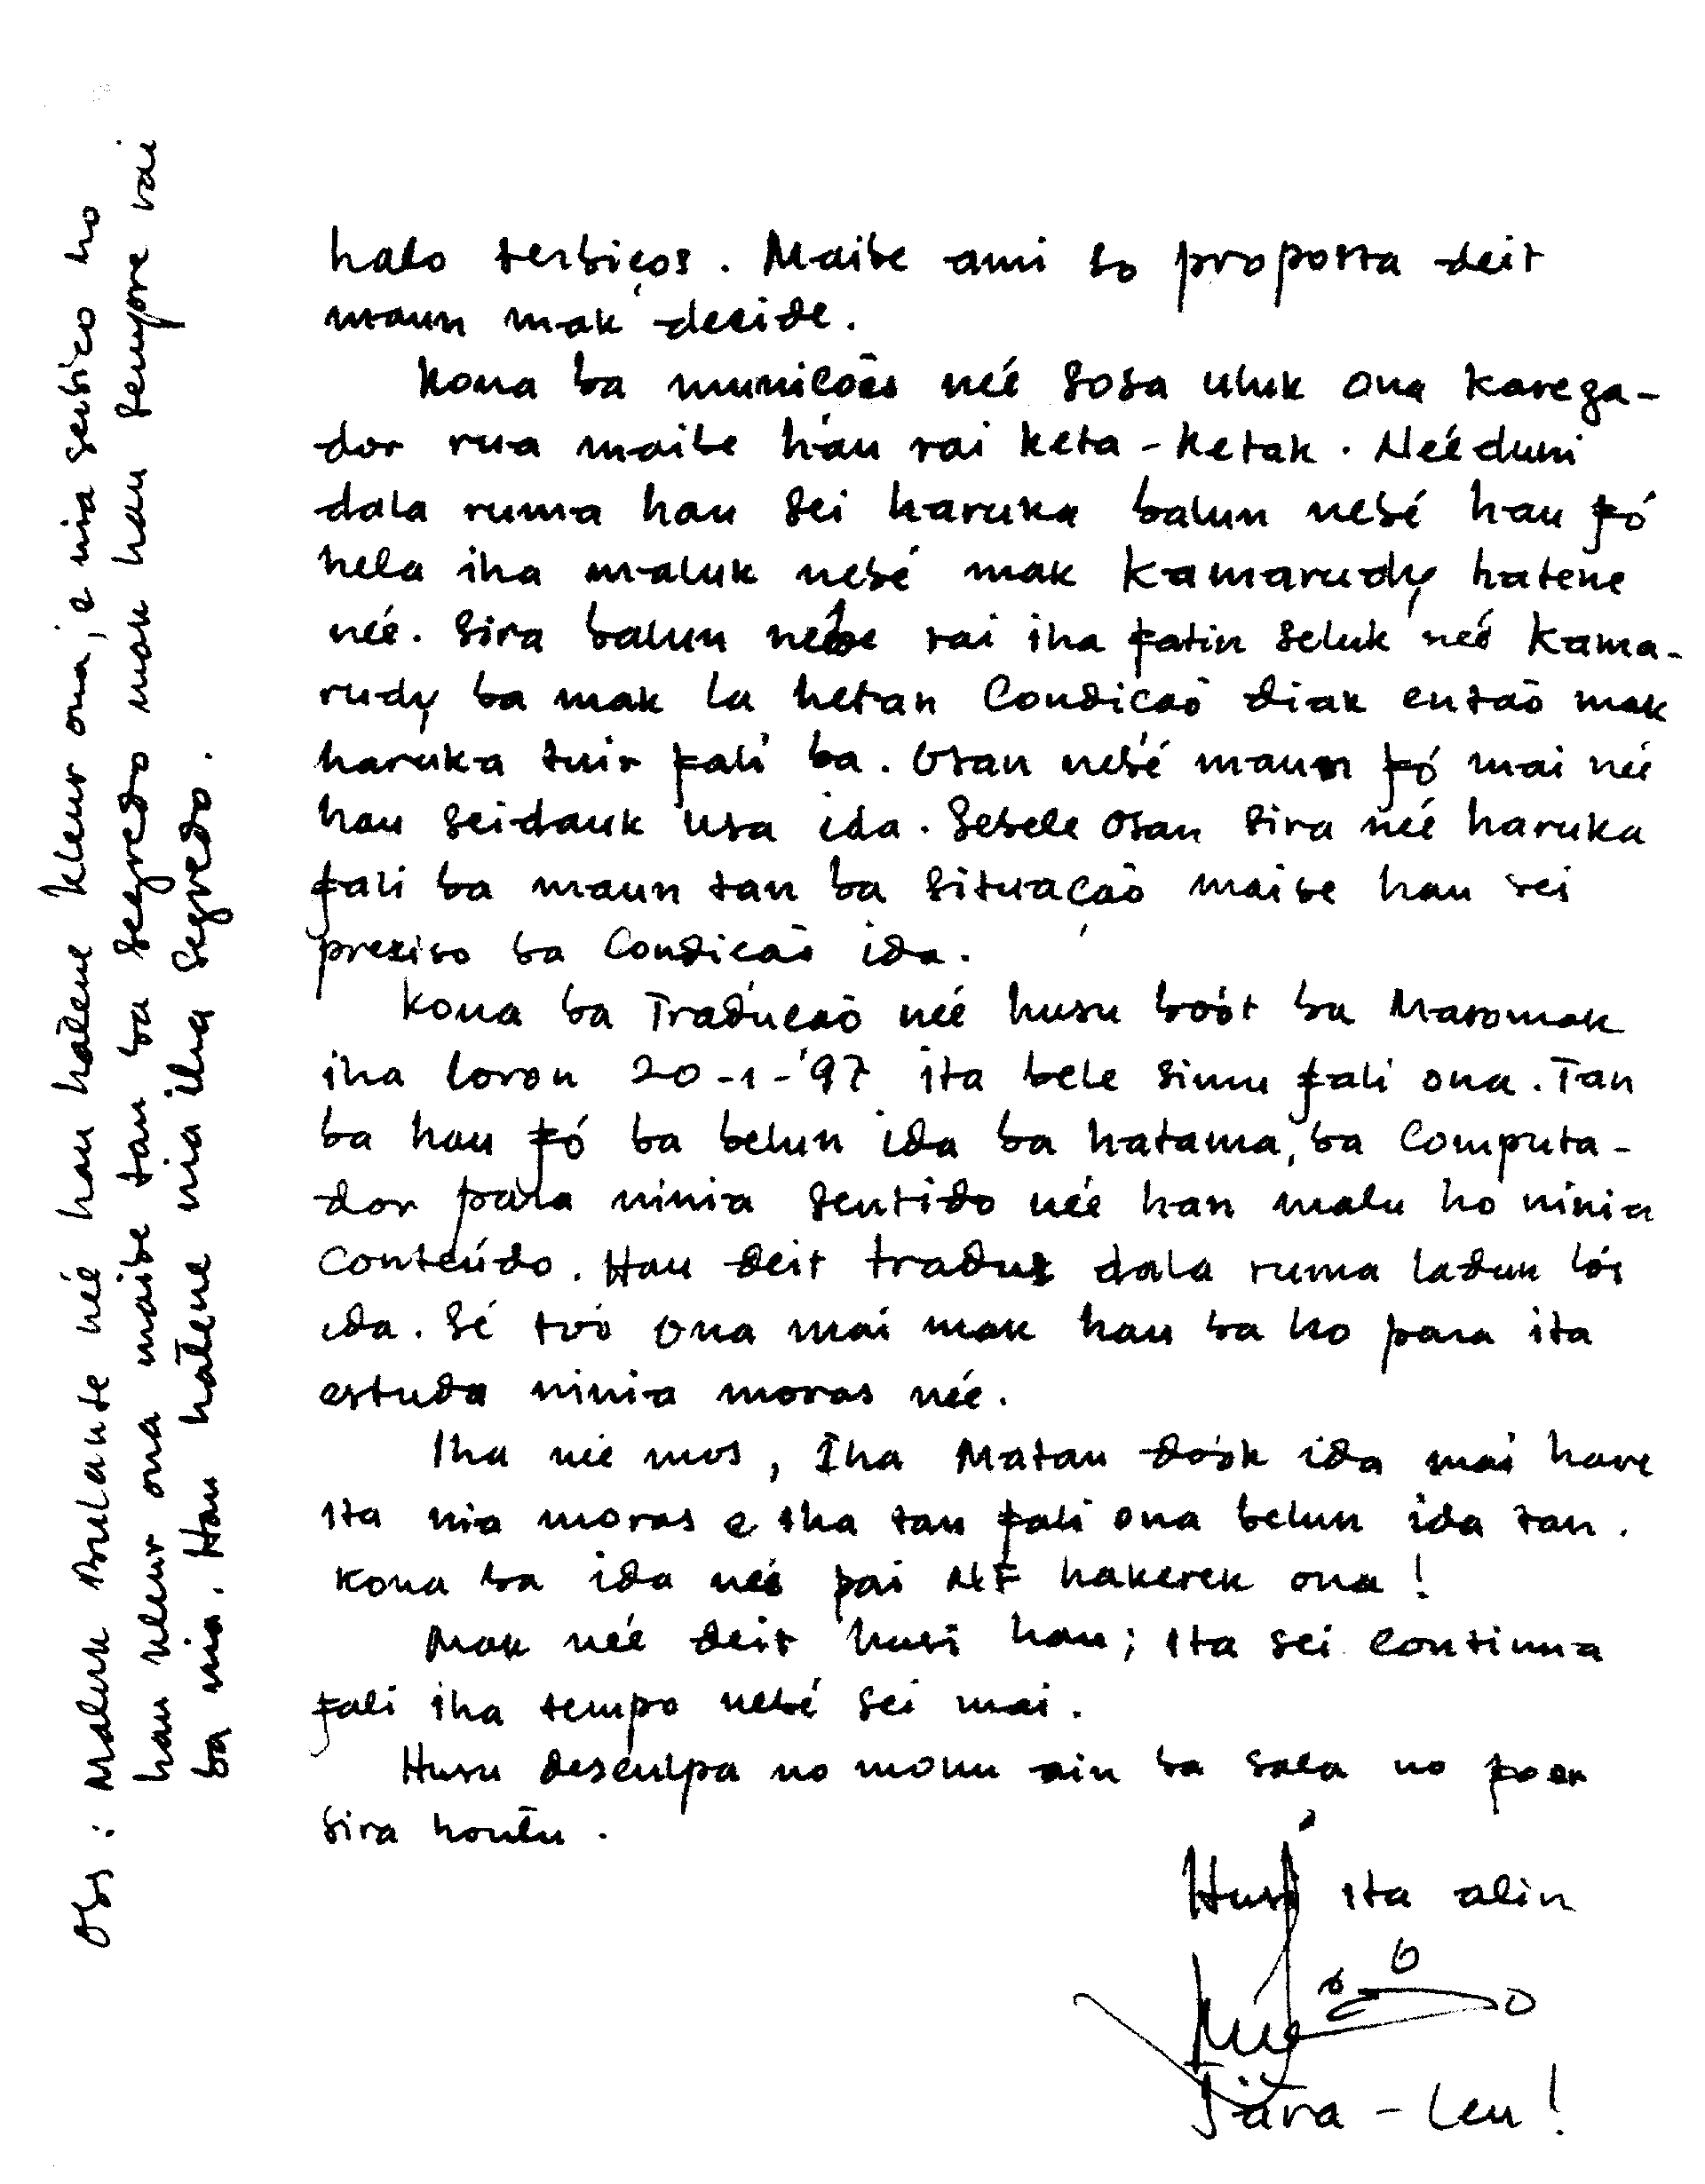 halo serbiços. Maibe ami so proposta deit
maun mak decide.
Kona ba municões neé sosa uluk ona Karega-
dor rua maibe háu rai keta-ketak. Neéduni
dala ruma hau sei haruka balun nebé hau fó
hela iha maluk nebé mak Kamarudy hatene
neé. Sira balun nebe rai iha fatin seluk neé Kama-
rudy ba mak la hetan Condição diak então mak
haruka tuir fali ba. Osan nebé maun fó mai neé
hau seidauk usa ida. Sebele osan sira neé haruka
fali ba maun tan ba situação maibe hau sei
preciso ba Condição ida.
Kona ba Tradução neé husu boót ba Maromak
iha loron 20-1-'97 ita bele simu fali ona. Tan
ba hau fó ba belun ida ba hatama, ba Computa-
dor para ninia sentido neé han malu ho ninia
Conteúdo. Hau deit tradus dala ruma laduk lós
ida. Sé toó ona mai mak hau ba ho para ita
estuda ninia moras neé.
Iha neé mos, Iha Matan doók ida mai hare
ita nia moras e iha tan fali ona belun ida tan.
Kona ba ida neé pai NF hakerek ona!
Mak neé deit husi hau; ita sei continua
fali iha tempo nebé sei mai.
Husu desculpa no monu ain ba sala no poer
sira houtu.
Husi ita alin
Jära-Leu!
Obs: Maluk Bulante né hau hatene kleur ona, e nia serbico ho
hau kleur ona maibe tan ba segredo mak hau sempre rai
ba nia. Hau hatene nia iha segredo.